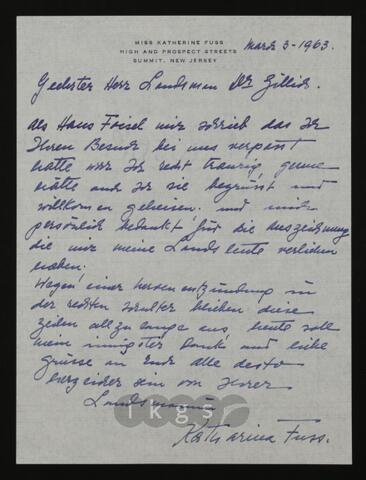 MISS KATHERINE FUSS
HIGH AND PROSPECT STREETS
SUMMIT, NEW JERSEY
March 3-1963.
Geehrter Herr Landsman Dr Zillich.
als Hans Freisel mir schrieb das Ich
Ihren Besuch bei uns verpasst
hatte war Ich recht traurig gerne
hätte auch Ich sie begrüsst und
willkomen geheisen. und mich
persönlich bedankt für die Auszeichnung
die mir meine Landsleute verlichen
haben.
Wegen einer nervenentzündung in
der rechten schulter blieben diese
zeilen all zu lange aus, heute soll
mein Dank und liebe
grüsse an Euch alle desto
herzlicher sein von Ihrer
Landsmanin
Katharina Fuss.
ikgs